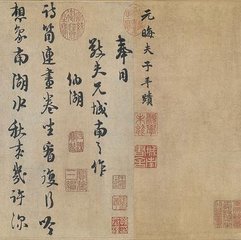 元晦夫子手蹟
奉同
敬夫兄城南之作
納湖
詩筒連畫卷坐看復行吟
想象南湖水秋來幾許深